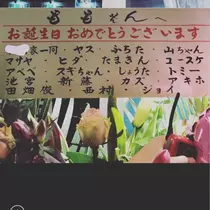 ももせんへ
お誕生日おめでとうございます
家一同・ヤス・ぶちた・山ちゃん
マサヤ・ヒダ・たまきん・コースケ
アベベ・スギちゃん・しょうた・トミー
池宮・新藤・カズ・アキホ
田畑俊・西村・ジョイ